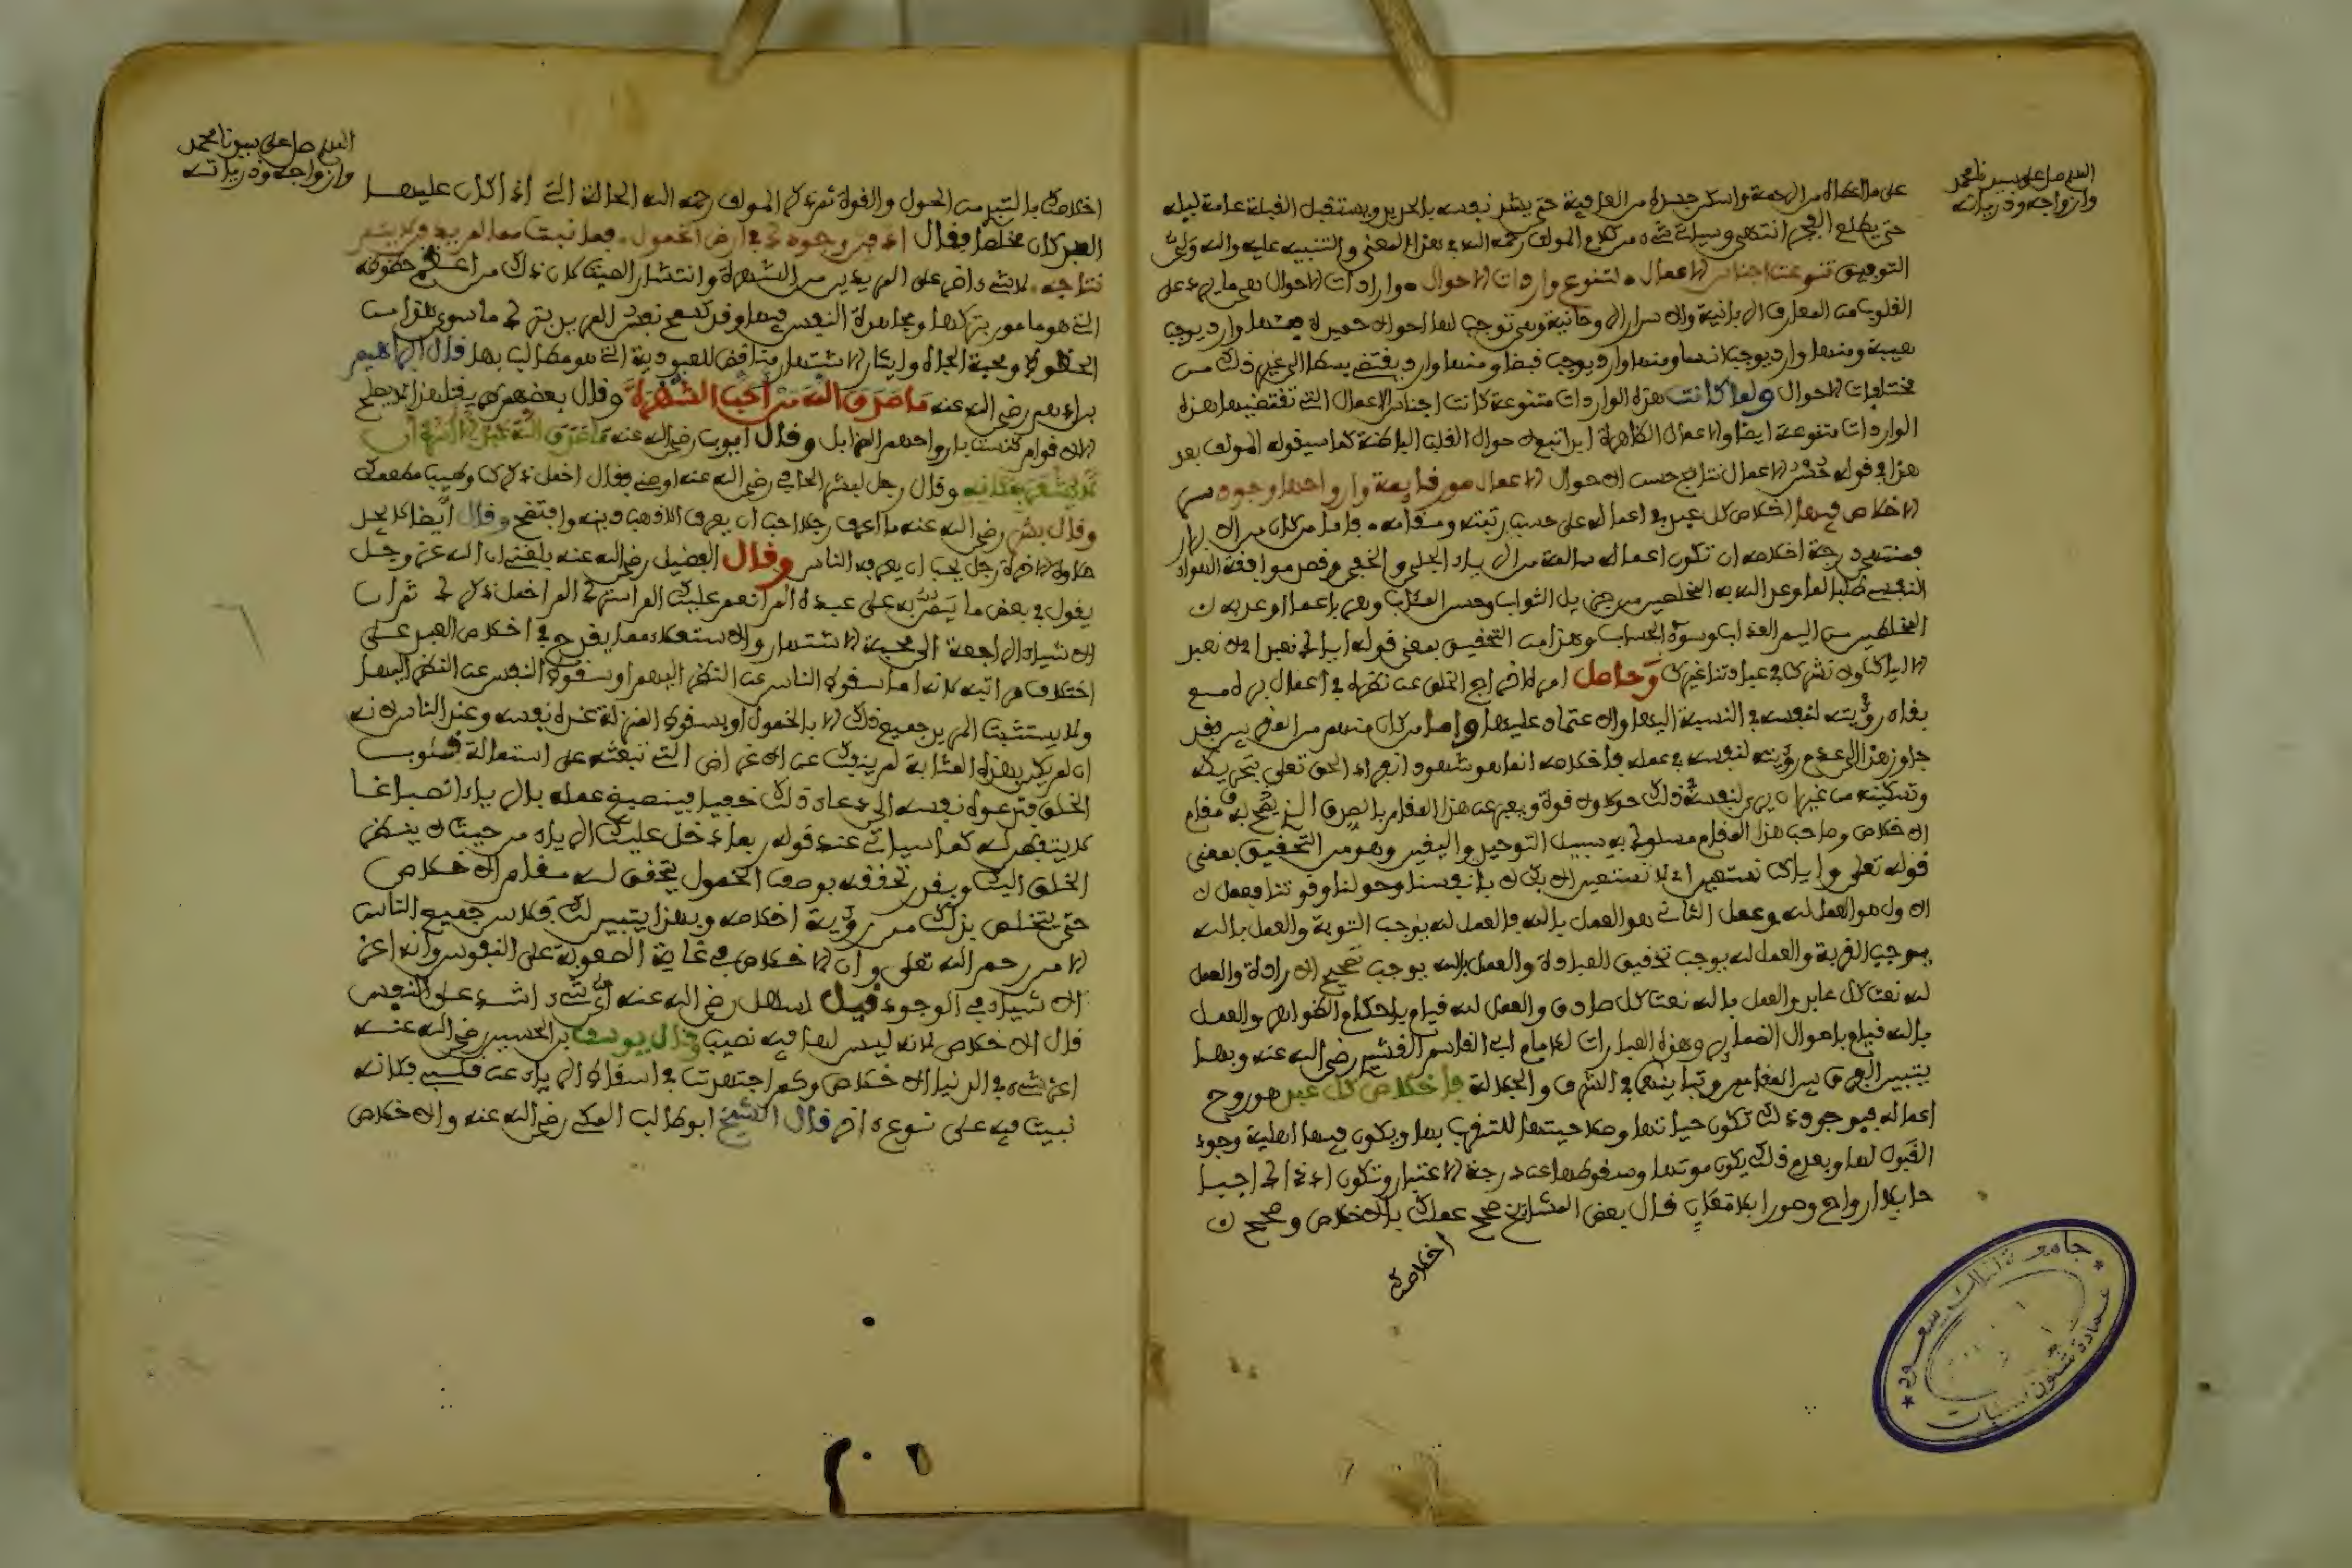 اللهم صل على سيدنا محمد
وازواجه وذرياته
حتى يطلع الفجر انتهى وسياتي شيء من كلام المولف رحمه الله في هذا المعنى والتنبيه عليه والله ولي
التوفيق تنوعت اجناس الاعمال لتنوع واردات الاحوال واردات الاحوال هي ما يرد على
القلوب من المعارف الربانية والاسرار الروحانية وهي توجب لها احوالا حميدة فمنها وارد يوجب
هيبة ومنها وارد يوجب انسا ومنها وارد يوجب قبضا ومنها وارد يقتضي بسطا الى غير ذلك من
مختلفات الاحوال ولما كانت هذه الواردات متنوعة كانت اجناس الاعمال التي تقتضيها هذه
الواردات متنوعة ايضا والاعمال الظاهرة ابدا تبع لاحوال القلب الباطنة كما سيقوله المولف بعد
هذا في قوله حسن الاعمال نتايج حسن الاحوال الاعمال صور قايمة وارواحها وجود سر
الاخلاص فيها اخلاص كل عبد في اعماله على حسب رتبته ومقامه فاما من كان من الابرار
فمنتهى درجة اخلاصه ان تكون اعماله سالمة من الرياء الجلي والخفي وقصد موافقة اهواء
النفس طلبا لما وعد الله به المخلصين من جزيل الثواب وحسن المئاب وهربا عما اوعد به
المخلطين من اليم العذاب وسوء الحساب وهذا من التحقيق بمعنى قوله اياك نعبد اي لا نعبد
الا اياك ولا نشرك في عبادتنا غيرك وحاصل امره اخراج الخلق عن نظره في اعمال بره مع
بقاء رؤيته لنفسه في النسبة اليها والاعتماد عليها واما من كان منهم من المقربين فقد
جاوز هذا الى عدم رؤيته لنفسه في عمله فاخلاصه انما هو شهود انفراد الحق تعلى بتحريكه
وتسكينه من غير ان يرى لنفسه في ذلك حولا ولا قوة ويعبر عن هذا المقام بالصدق الذي يصح به مقام
الاخلاص وصاحب هذا المقام مسلوك به سبيل التوحيد واليقين وهو من التحقيق بمعنى
قوله تعلى واياك نستعين اي لا نستعين الا بك لا بانفسنا وحولنا وقوتنا فعمل
الاول هو العمل لله وعمل الثاني هو العمل بالله فالعمل لله يوجب التوبة والعمل بالله
يوجب القربة والعمل لله يوجب تحقيق العبادة والعمل بالله يوجب تصحيح الارادة والعمل
لله نعت كل عابد والعمل بالله نعت كل صادق والعمل لله قيام باحكام الظواهر والعمل
بالله قيام باحوال الضماير وهذه العبارات للامام ابي القاسم القشيري رضي الله عنه وبهذا
يتبين الفرق بين المقامين وتباينهما في الشرف والجلالة فاخلاص كل عبد هو روح
اعماله فبوجود ذلك تكون حياتها وصلاحيتها للتقرب بها ويكون فيها اهلية وجود
القبول لها وبعدم ذلك يكون موتها وسقوطها عن درجة الاعتبار وتكون اذ ذاك اجساما
بلا ارواح وصورا بلا معان قال بعض المشايخ صحح عملك بالاخلاص وصحح
اخلاصك
جامعة الملك سعود
عمادة شئون المكتبات
اللهم صل على سيدنا محمد
وازواجه وذرياته
اخلاصك بالتبري من الحول والقوة ثم ذكر المولف رحمه الله الحالة التي اذا كان عليها
العبد كان مخلصا فقال ادفن وجودك في ارض الخمول فما نبت مما لم يدفن لا يتم
نتاجه لا شيء اضر على المريد من الشهرة وانتشار الصيت لان ذلك من اعظم حظوظه
التي هو مامور بتركها ومجاهدة النفس فيها وقد تسمح نفس المريد بترك ما سوى هذا من
الحظوظ ومحبة الجاه وايثار الاشتهار مناقض للعبودية التي هو مطالب بها قال ابراهيم
بن ادهم رضي الله عنه ما صدق الله من احب الشهرة وقال بعضهم طريقتنا هذه لا تصلح
الا لاقوام كنست بارواحهم المزابل وقال ايوب رضي الله عنه ما صدق الله عبد الا سره ان
لا يشعر بمكانه وقال رجل لبشر الحافي رضي الله عنه اوصني فقال اخمل ذكرك وطيب مطعمك
وقال بشر رضي الله عنه ما اعرف رجلا احب ان يعرف الا ذهب دينه وافتضح وقال ايضا لا يجد
حلاوة الاخرة رجل يحب ان يعرفه الناس وقال الفضيل رضي الله عنه بلغني ان الله عز وجل
يقول في بعض ما يمتن به على عبده الم انعم عليك الم استرك الم اخمل ذكرك
الاشياء الراجعة الى محبة الاشتهار والاستعلاء مما يقدح في اخلاص العبد على
اختلاف مراتبه لانه اما سقوط الناس عن النظر اليهم او سقوط النفس عن النظر اليها
ولا يستتب المريد جميع ذلك الا بالخمول او بسقوط المنزلة عند نفسه وعند الناس لانه
ان لم يكن بهذه المثابة لم ينفك عن الاغراض التي تبعثه على استمالة قلوب
الخلق فتدعوه نفسه الى ذلك خفيا فينصبغ عمله بالرياء انصباغا
لا يتفطن له كما سياتي عند قوله ربما دخل عليك الرياء من حيث لا ينظر
الخلق اليك وبقدر تحققه بوصف الخمول يتحقق له مقام الاخلاص
حتى يتخلص بذلك من رؤية اخلاصه وبهذا يتبين لك افلاس جميع الناس
الا من رحم الله تعلى وان الاخلاص في غاية الصعوبة على النفوس وانه اعز
الاشياء في الوجود قيل لسهل رضي الله عنه اي شيء اشد على النفس
قال الاخلاص لانه ليس لها فيه نصيب وقال يوسف بن الحسين رضي الله عنه
اعز شيء في الدنيا الاخلاص وكم اجتهدت في اسقاط الرياء عن قلبي فكانه
نبت فيه على نوع اخر قال الشيخ ابو طالب المكي رضي الله عنه والاخلاص